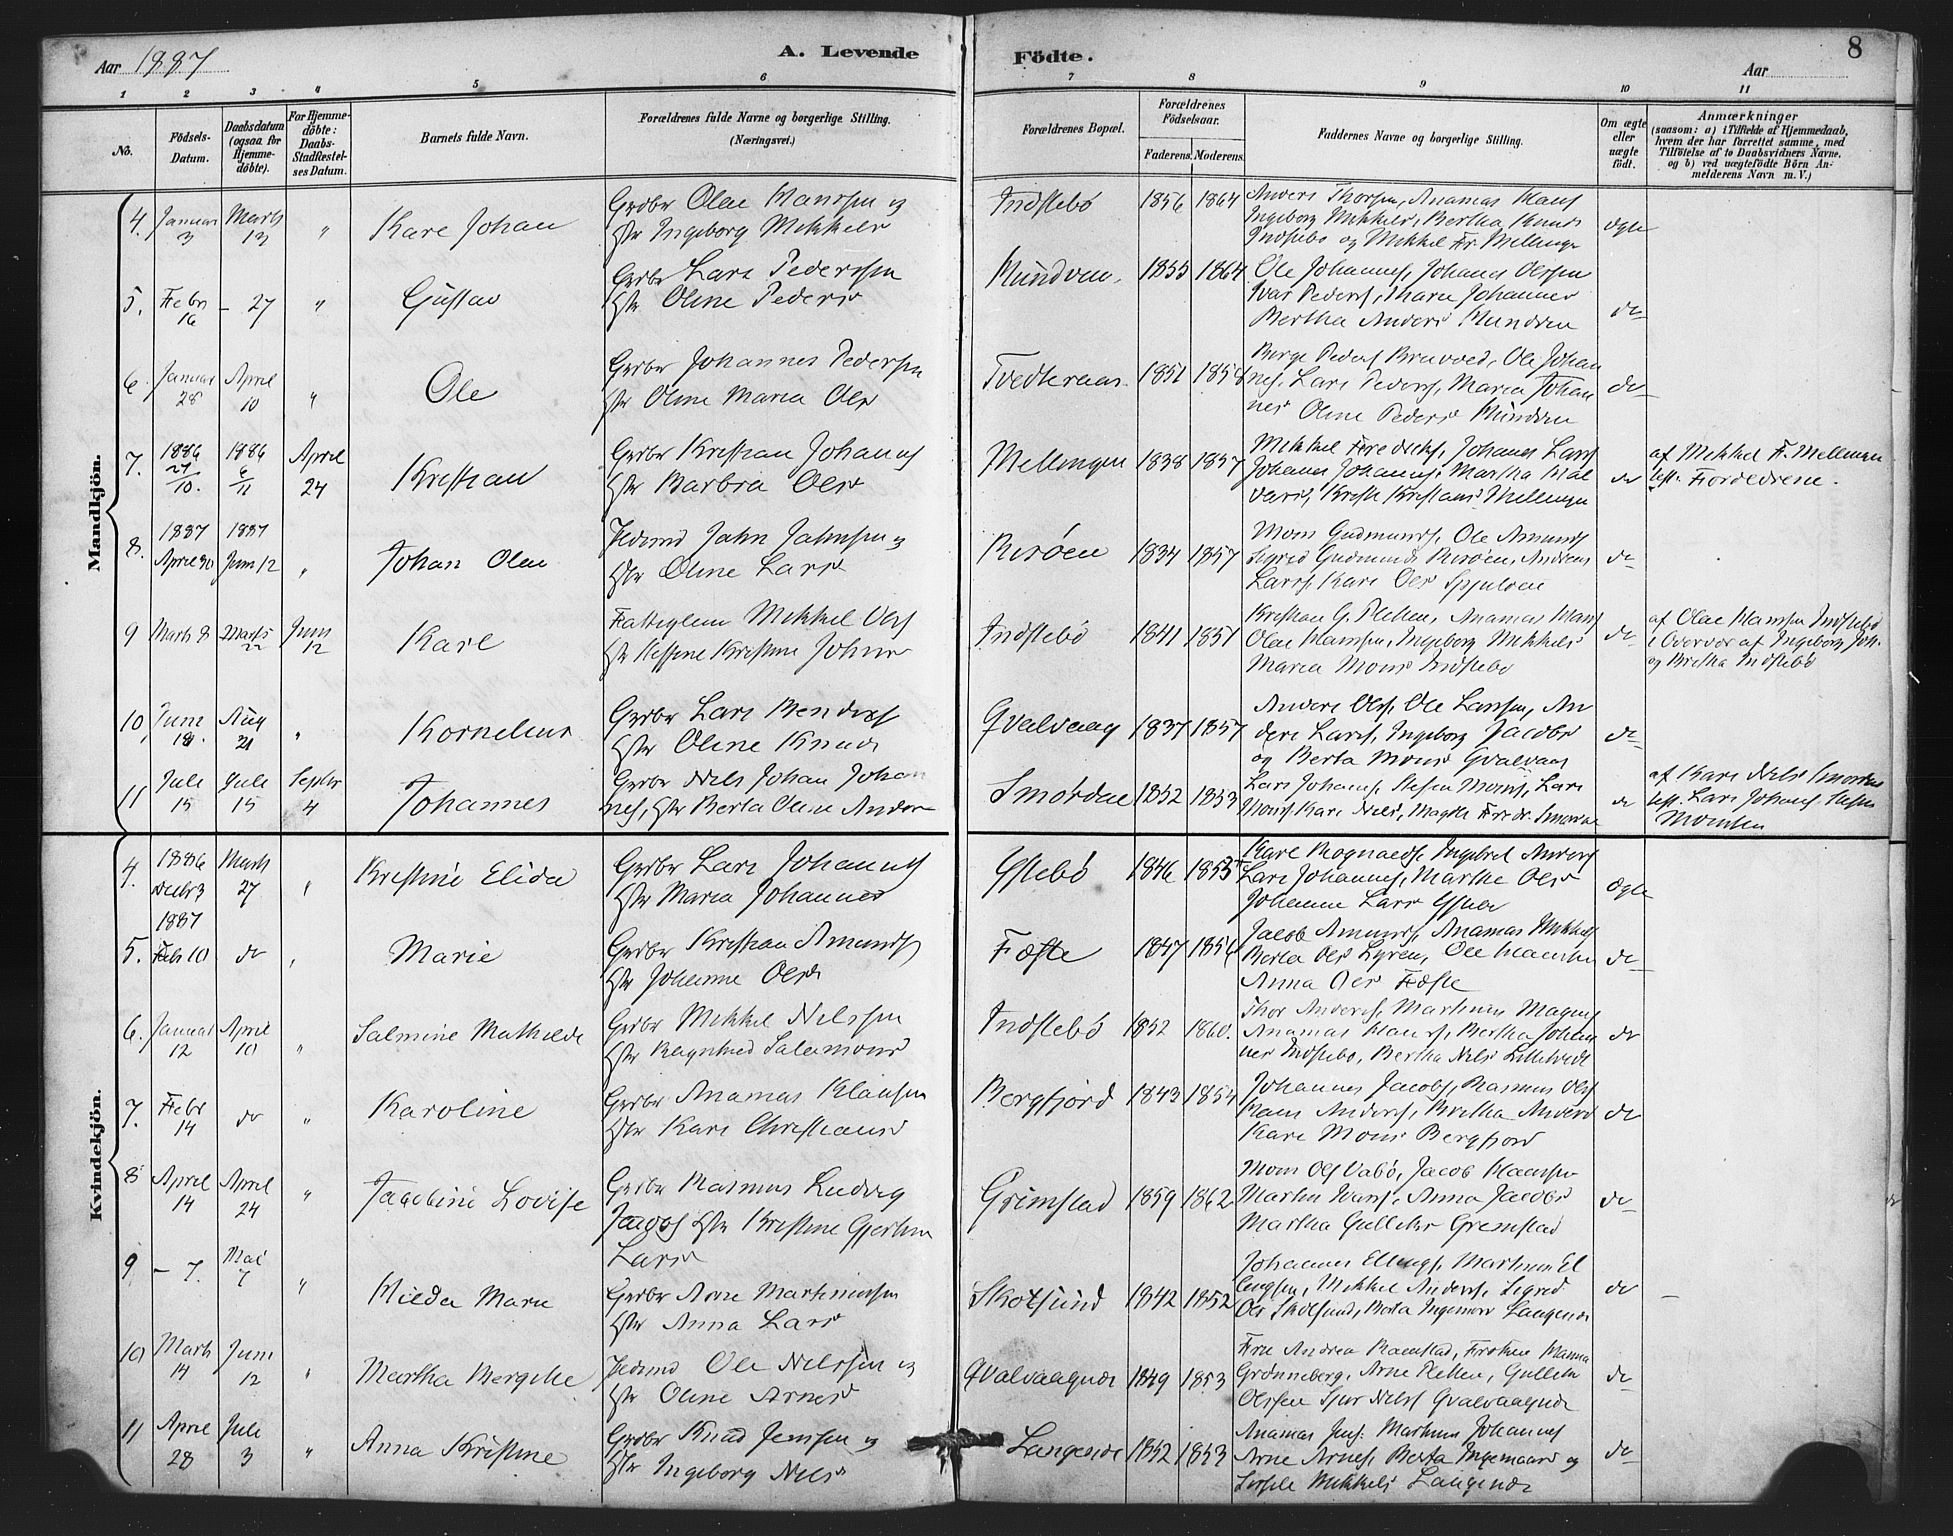 Aar 1887 A. Levende Födte. Aar 8
1 2 3 4 5 6 7 8 9 10 11
No.
Födsels-Datum.
Daabsdatum (ogsaa for Hjemme-döbte).
For Hjemme-döbte: Daabs-Stadfæstel-ses Datum.
Barnets fulde Navn.
Forældrenes fulde Navne og borgerlige Stilling. (Næringsvei.)
Forældrenes Bopæl.
Forældrenes Födselsaar.
Faderens. Moderens.
Faddernes Navne og borgerlige Stilling.
Om ægte eller uægte födt.
Anmærkninger
(saasom: a) i Tilfælde af Hjemmedaab, hvem der har forrettet samme, med Tilföielse af to Daabsvidners Navne, og b) ved uægtefödte Börn An-melderens Navn m. V.)
Mandkjön.
4. Januar 3 Marts 13 " Kare Johan
Grdbr Olai Hanssen og
Hstr Ingeborg Mikkelsd
Indstebö 1856 1864
Anders Thorsen, Ananias Hans
Ingeborg Mikkels, Bertha Knuds
Indstebö og Mikkel Fr. Mellingen
ægte
5. Febr 16 – 27 " Gustav
Grdbr Lars Pederssen
Hstr Oline Pedersd
Mundven. 1855 1864
Ole Johanness, Johannes Olssen
Ivar Pederss, Maria Johannesd
Bertha Andersd Mundven
do
6. Januar 28 April 10 " Ole
Grdbr Johannes Pedersen
Hstr Oline Maria Olsd
Tvedteraas 1851 1858
Börge Peders, Ole Johan
nes, Lars Peders, Maria Johan
nesd Oline Pedersd Mundven
do
7. 1886 27/10. 1886 6/11 April 24 Kristian
Grdbr Kristian Johanns
Hstr Barbra Olsd
Mellingen 1838 1857
Mikkel Fredrikss, Johannes Larss
Johannes Johanns, Martha Hal
vars, Kristi Kristians Mellingen
do
af Mikkel F. Mellingen
test. Forældrene.
8. 1887 April 30 1887 Juni 12 " Johan Olai
Husmd Jahn Jahnsen og
Hstr Oline Larsd
Risöen 1834 1857
Mons Gudmunds, Ole Amunds
Sigrid Gudmunds Risöen, Andreas
Larss, Kari Olsd
do
9 Marts 8 Marts 22 Juni 12 Karl
Fattiglem Mikkel Ols
Hstr Kristine Johnsd
Indstebö 1841 1851
Kristian G. Pletten, Ananias Hans
Olai Hanssen, Ingeborg Mikkels
Maria Monsd Indstebö
do
af Olai Hanssen Indstebö
i Overvær af Ingeborg Joh.
og Britha Indstebö
10. Juni 18. Aug 21 " Kornelius
Grdbr Lars Bendixs
Hstr Oline Knudsd
Qvalvaag 1837 1857
Anders Olss, Ole Larssen, An
ders Larss, Ingeborg Jacobs
og Berta Monsd Qvalvaag
do
11 Juli 15 Juli 15 Septbr 4 Johannes
Grdbr Nils Johan Johan
nes, Hstr Berta Oline Anders
Smördal 1852 1853
Lars Johans, Stefen Mons, Lars
Mons Kari Nils, Magthe Fredr. Smördal
do
af Kari Nilsd Smördal
test. Lars Johans Stefen
Monssen
Kvindekjön.
4. 1886 Decbr 3 Marts 27 " Kristine Elida
Grdbr Lars Johanns
Hstr Maria Johannesd
Ystebö 1846 1855
Kare Rognalds, Ingebret Anders
Lars Johannes, Marthe Olsd
Johanne Larsd Ystebö
ægte
5. 1887 Feb 10 do " Marie
Grdbr Kristian Amunds
Hstr Johanne Olsd
Fæste 1847 1856
Jacob Amunds, Ananias Mikkels
Berta Olsd Lyren, Ole Hanssen
Anna Olsd Fæste
do
6. Januar 12 April 10 " Salmine Mathilde
Grdbr Mikkel Nilssen
Hstr Ragnhild Salamonsd
Indstebö 1852 1860.
Thor Anderss, Martinus Magnus
Ananias Hans, Bertha Johan
nes Indstebö, Bertha Nilsd Lilletvedt
do
7. Febr 14 do " Karoline
Grdbr Ananias Klausen
Hstr Kari Christiansd
Bergfjord 1843 1854
Johannes Jacobs, Rasmus Ols
Hans Anderss, Britha Andersd
Kari Monsd Bergfjord
do
8 April 14 April 24 " Jacobine Lovise
Grdbr Rasmus Ludvig
Jacobs Hstr Kristine Gjertine
Larsd
Grimstad 1859 1862
Mons Ols Vabö, Jacob Hanssen
Martin Ivars, Anna Jacobs
Martha Gulliksd Grimstad
do
9 – 7. Mai 7 " Hilda Marie
Grdbr Arne Martinussen
Hstr Anna Larsd
Skotsund 1842 1852
Johannes Ellings, Martinus El
lingsen, Mikkel Anders, Sigrid
Ols Skotsund, Berta Ingemars Langenæs
do
10 Marts 14 Juni 12 " Martha Bergitte
Husmd Ole Nilssen og
Hstr Oline Arnesd
Qvalvaagnæs 1849 1853
Fru Andrea Ramstad, Fröken Hanna
Grönneberg, Arne Pletten, Gullik
Olssen Sjur Nilss Qvalvaagnæs
do
11 April 28 Juli 3 " Anna Kristine
Grdbr Knud Jenssen og
Hstr Ingeborg Nilsd
Langenæs 1852 1853
Ananias Jens, Martinus Johanns
Arne Arnes, Berta Ingemaars og
Mikkels Langenæs
do